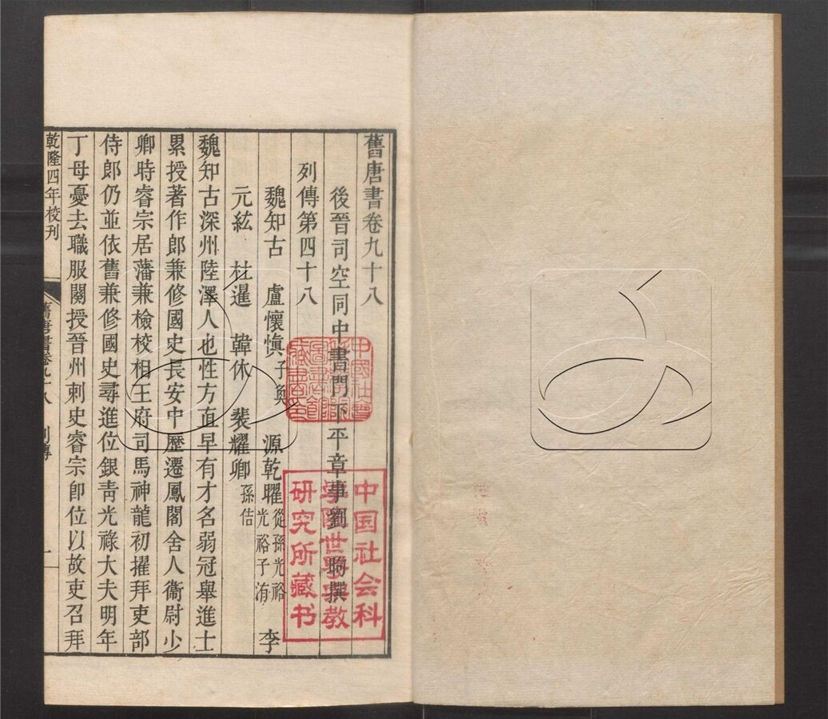 舊唐書卷九十八
後晉司空同中書門下平章事劉昫撰
列傳第四十八
魏知古 盧懷慎 子奐 源乾曜 從孫光裕 光裕子洧 李
元紘 杜暹 韓休 裴耀卿 孫佶
魏知古深州陸澤人也性方直早有才名弱冠舉進士
累授著作郎兼修國史長安中歷遷鳳閣舍人衞尉少
卿時睿宗居藩兼檢校相王府司馬神龍初擢拜吏部
侍郎仍並依舊兼修國史尋進位銀青光祿大夫明年
丁母憂去職服闋授晉州刺史睿宗即位以故吏召拜
乾隆四年校刊
舊唐書卷九十八 列傳
一
中国社会科
学院世界宗教
研究所藏书